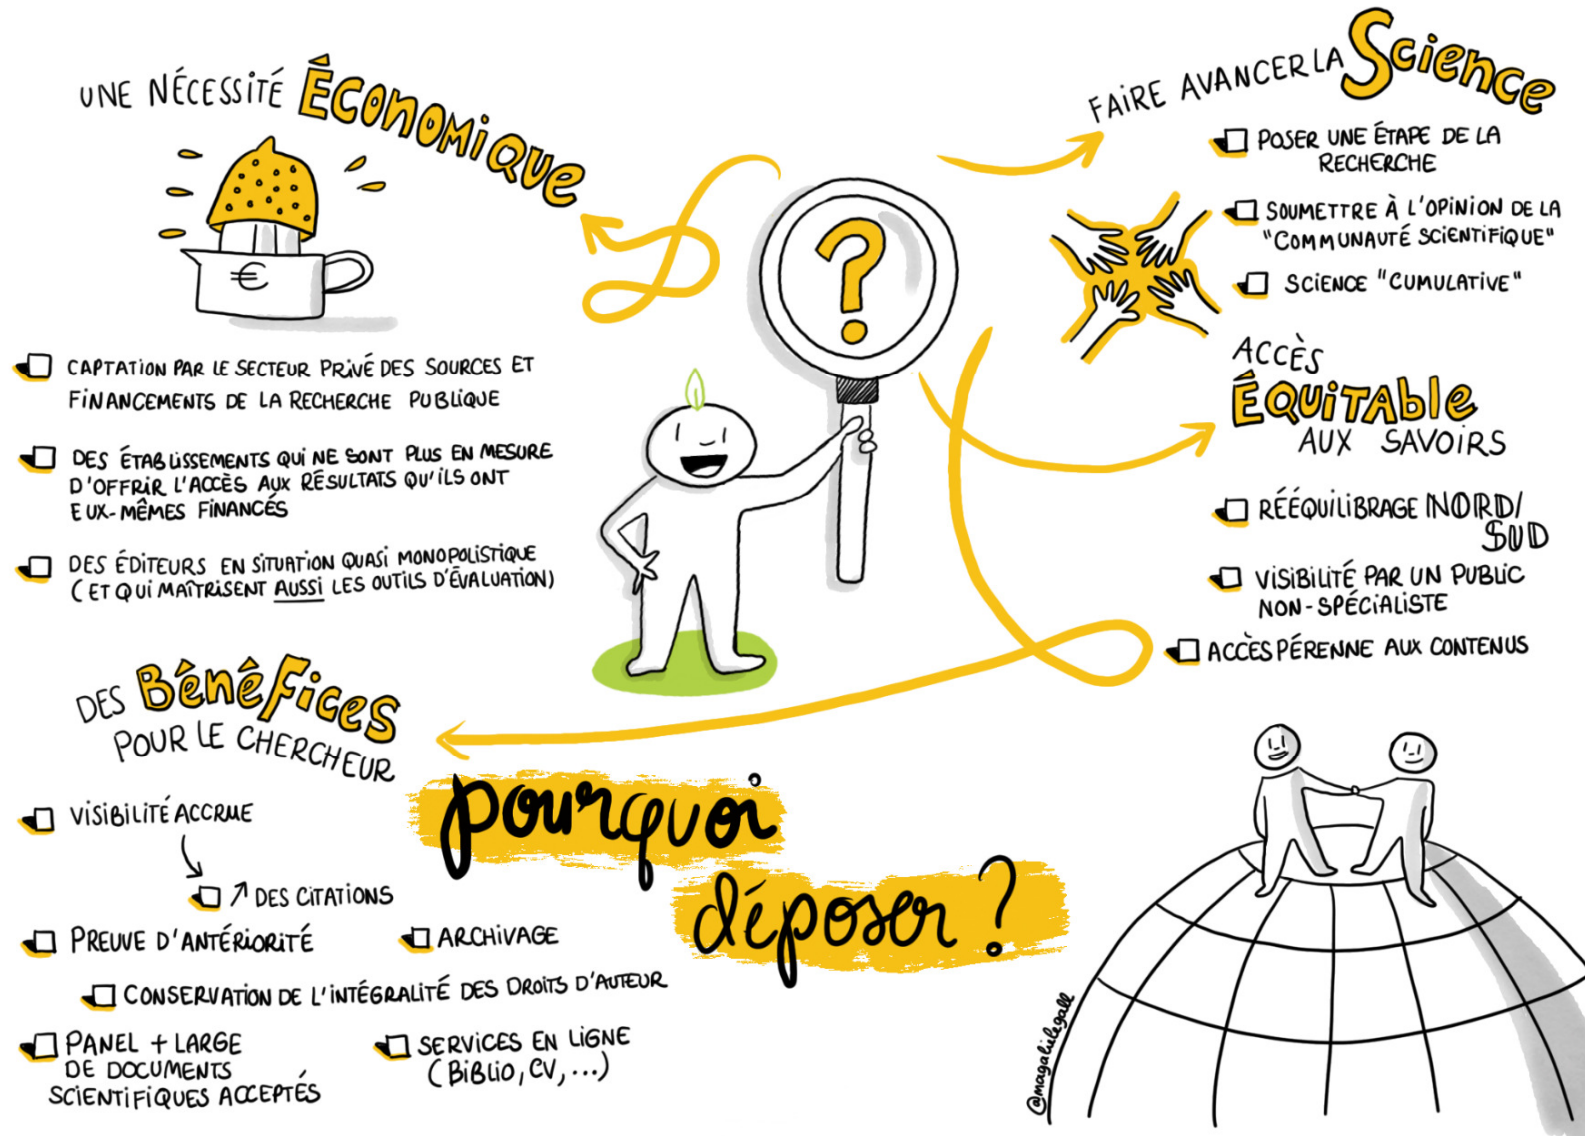 UNE NÉCESSITÉ ÉCONOMIQUE
€
CAPTATION PAR LE SECTEUR PRIVÉ DES SOURCES ET
FINANCEMENTS DE LA RECHERCHE PUBLIQUE
DES ÉTABLISSEMENTS QUI NE SONT PLUS EN MESURE
D'OFFRIR L'ACCÈS AUX RÉSULTATS QU'ILS ONT
EUX-MÊMES FINANCÉS
DES ÉDITEURS EN SITUATION QUASI MONOPOLISTIQUE
(ET QUI MAÎTRISENT AUSSI LES OUTILS D'ÉVALUATION)
?
FAIRE AVANCER LA Science
POSER UNE ÉTAPE DE LA
RECHERCHE
SOUMETTRE À L'OPINION DE LA
"COMMUNAUTÉ SCIENTIFIQUE"
SCIENCE "CUMULATIVE"
ACCÈS
ÉQUITABLE
AUX SAVOIRS
RÉÉQUILIBRAGE NORD/
SUD
VISIBILITÉ PAR UN PUBLIC
NON-SPÉCIALISTE
ACCÈS PÉRENNE AUX CONTENUS
DES BénéFices
POUR LE CHERCHEUR
VISIBILITÉ ACCRUE
↗ DES CITATIONS
PREUVE D'ANTÉRIORITÉ
ARCHIVAGE
CONSERVATION DE L'INTÉGRALITÉ DES DROITS D'AUTEUR
PANEL + LARGE
DE DOCUMENTS
SCIENTIFIQUES ACCEPTÉS
SERVICES EN LIGNE
(BIBLIO, CV, ...)
pourquoi
déposer ?
@magalielegall